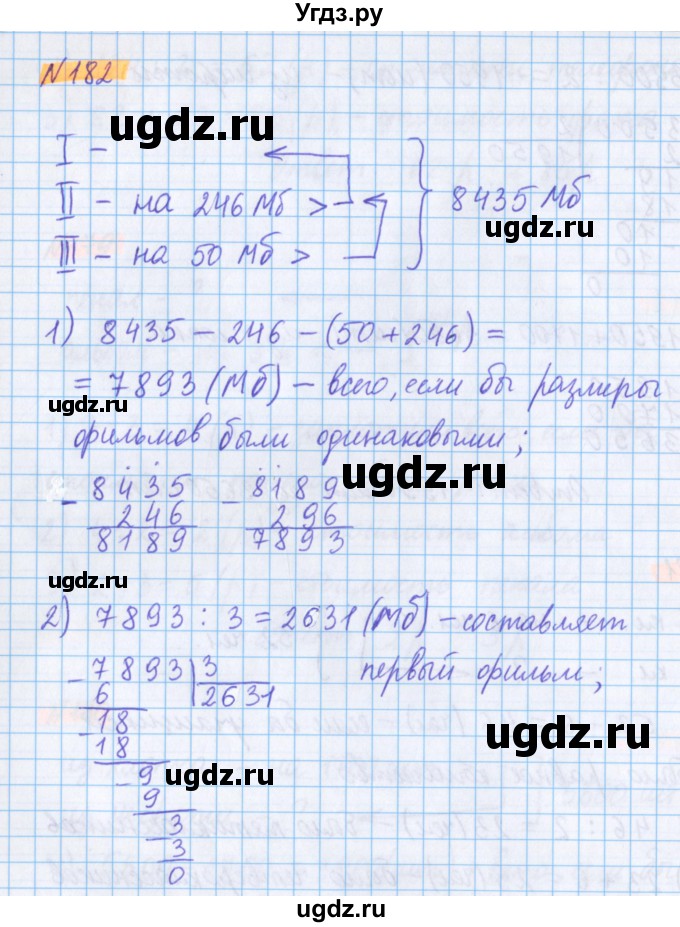 Угдз.ру
N 182
I –
II – на 246 Мб >
III – на 50 Мб >
8435 Мб
1) 8435 – 246 – (50 + 246) =
= 7893 (Мб) – всего, если бы размеры
фильмов были одинаковыми;
– 8435
246
8189
– 8189
296
7893
2) 7893 : 3 = 2631 (Мб) – составляет
первый фильм;
– 7893 | 3
6 2631
– 18
18
– 9
9
– 3
3
0
ugdz.ru
ugdz.ru
ugdz.ru
ugdz.ru
ugdz.ru
ugdz.ru
ugdz.ru
ugdz.ru
ugdz.ru